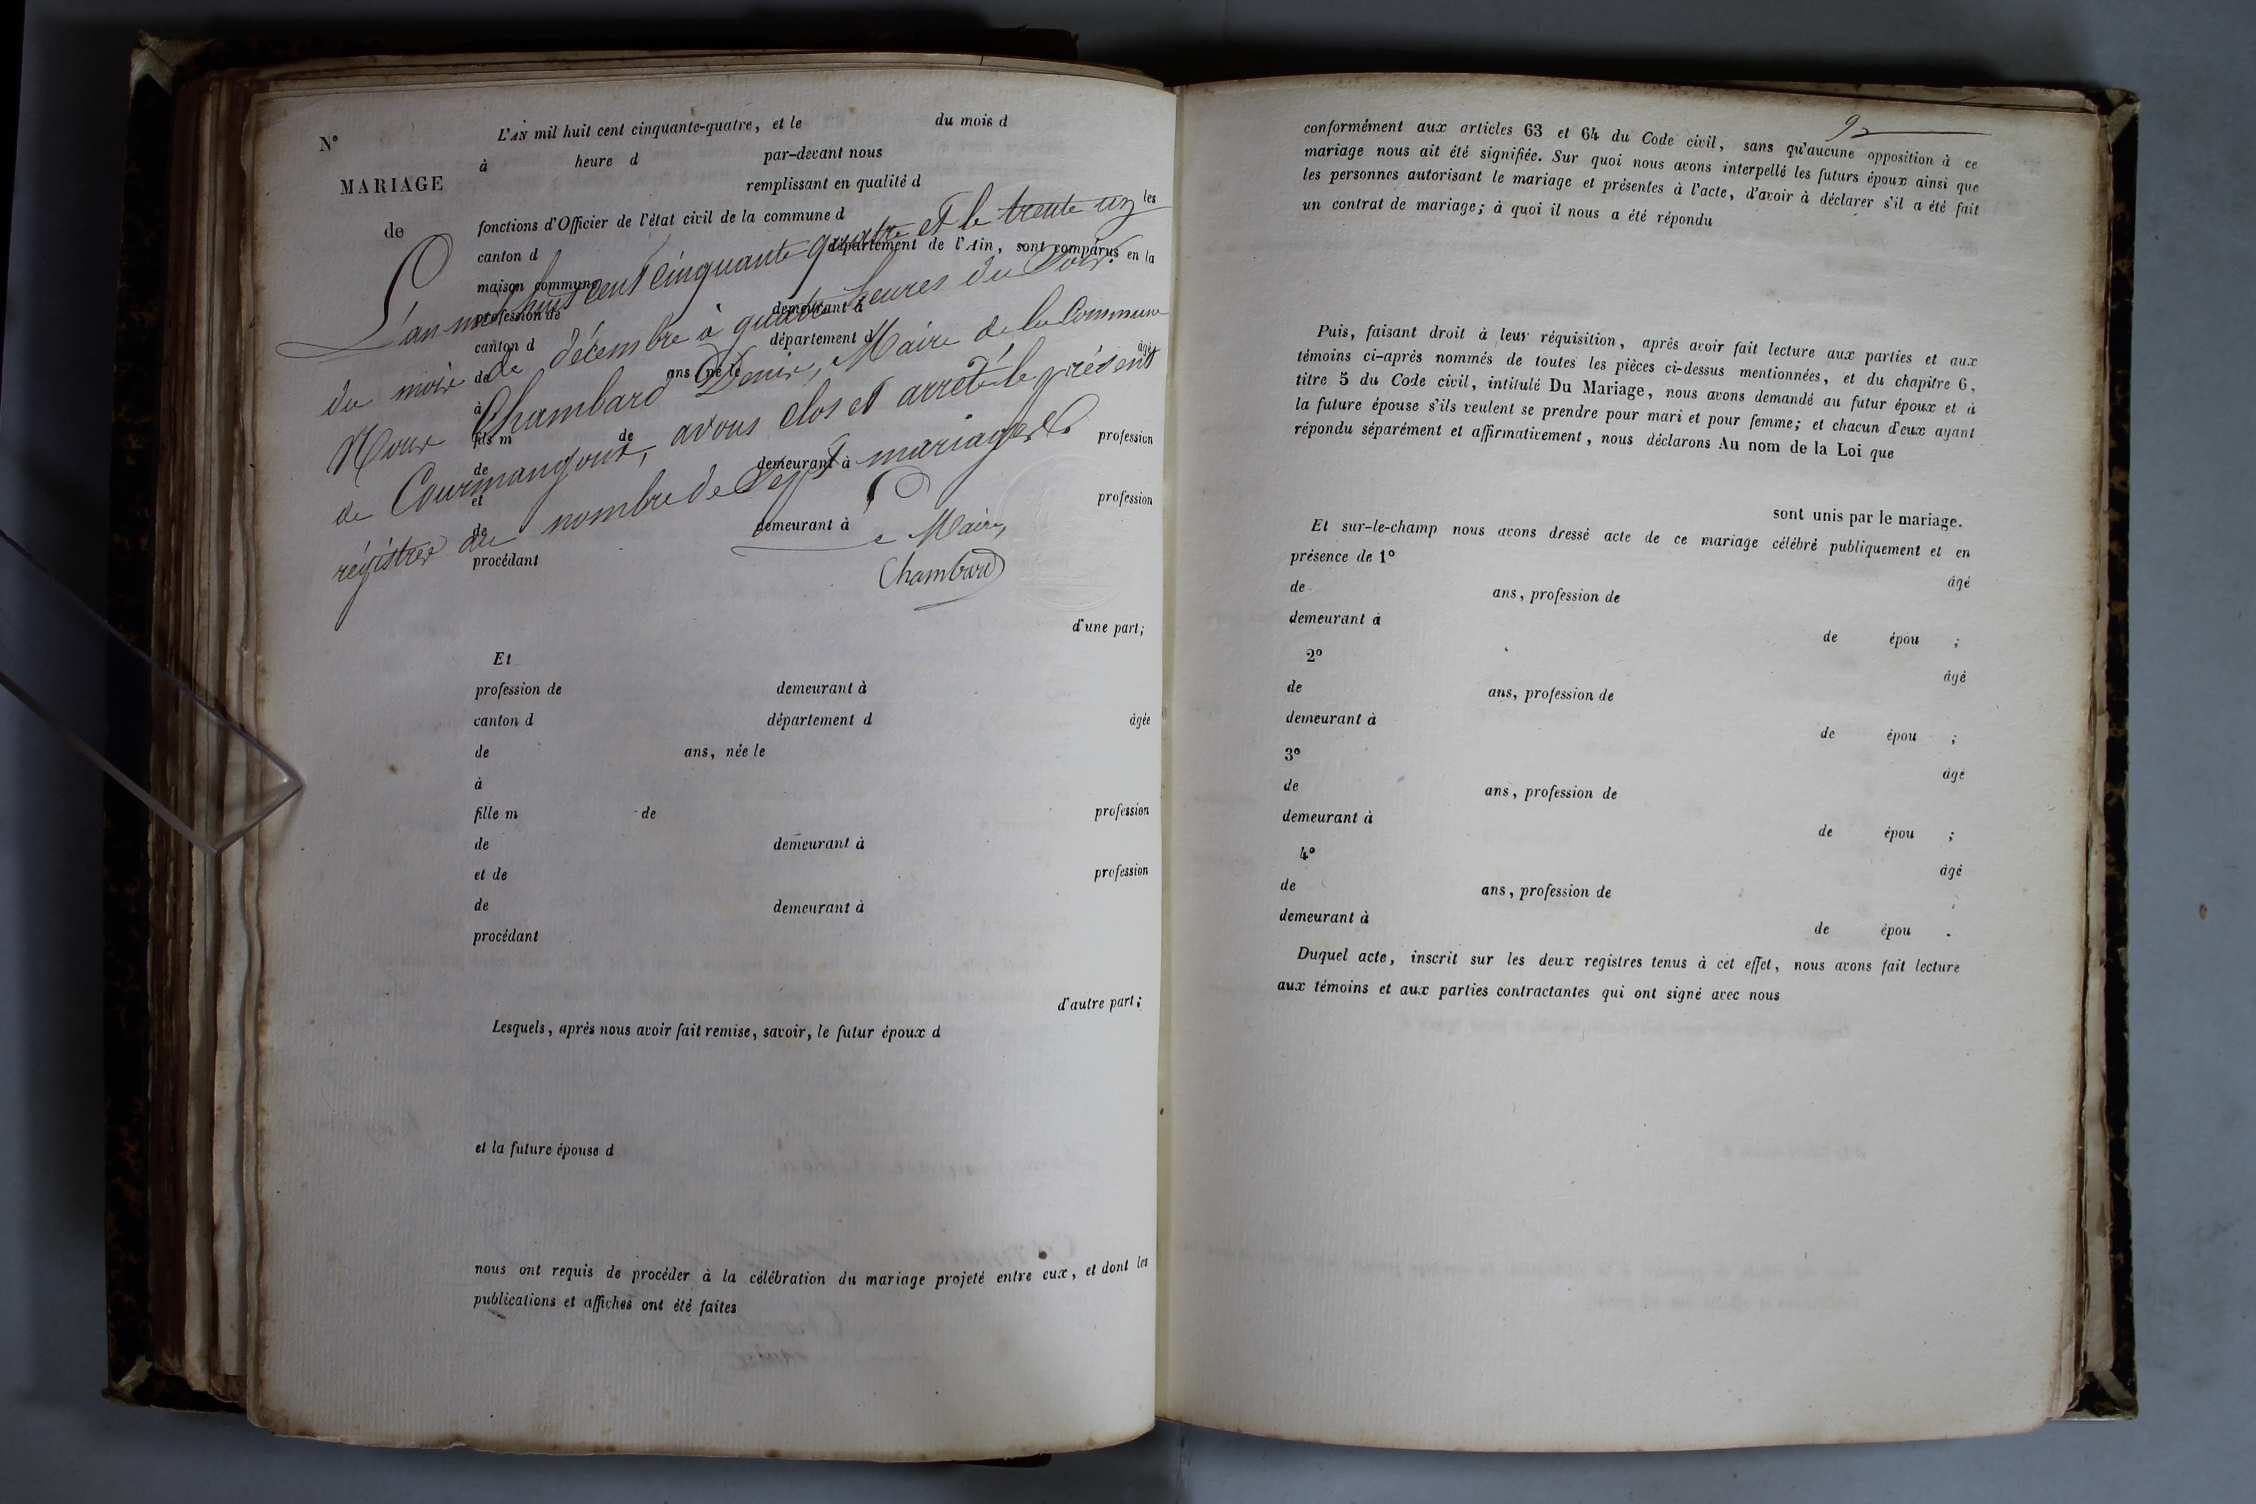 N°
MARIAGE
de
L'AN mil huit cent cinquante-quatre, et le du mois d
à heure d par-devant nous
remplissant en qualité d les
fonctions d'Officier de l'état civil de la commune d
canton d département de l'Ain, sont comparus en la
maison commune
profession de demeurant à
canton d département d âgé
de ans, né le
à
fils m de profession
de demeurant à
et profession
de demeurant à
procédant
d'une part;
L'an mil huit cent cinquante quatre et le trente un
du mois de décembre à quatre heures du soir.
Nous Chambard Denis, Maire de la Commune
de Courmangoux, avons clos et arrêté le présent
régistre au nombre de Sept mariages
Le Maire,
Chambard
Et
profession de demeurant à
canton d département d âgée
de ans, née le
à
fille m de profession
de demeurant à
et de profession
de demeurant à
procédant
d'autre part;
Lesquels, après nous avoir fait remise, savoir, le futur époux d
et la future épouse d
nous ont requis de procéder à la célébration du mariage projeté entre eux, et dont les
publications et affiches ont été faites
conformément aux articles 63 et 64 du Code civil, sans qu'aucune opposition à ce
mariage nous ait été signifiée. Sur quoi nous avons interpellé les futurs époux ainsi que
les personnes autorisant le mariage et présentes à l'acte, d'avoir à déclarer s'il a été fait
un contrat de mariage; à quoi il nous a été répondu
Puis, faisant droit à leur réquisition, après avoir fait lecture aux parties et aux
témoins ci-après nommés de toutes les pièces ci-dessus mentionnées, et du chapitre 6,
titre 5 du Code civil, intitulé Du Mariage, nous avons demandé au futur époux et à
la future épouse s'ils veulent se prendre pour mari et pour femme; et chacun d'eux ayant
répondu séparément et affirmativement, nous déclarons Au nom de la Loi que
sont unis par le mariage.
Et sur-le-champ nous avons dressé acte de ce mariage célébré publiquement et en
présence de 1° âgé
de ans, profession de
demeurant à de épou ;
2° âgé
de ans, profession de
demeurant à de épou ;
3° âgé
de ans, profession de
demeurant à de épou ;
4° âgé
de ans, profession de
demeurant à de épou .
Duquel acte, inscrit sur les deux registres tenus à cet effet, nous avons fait lecture
aux témoins et aux parties contractantes qui ont signé avec nous